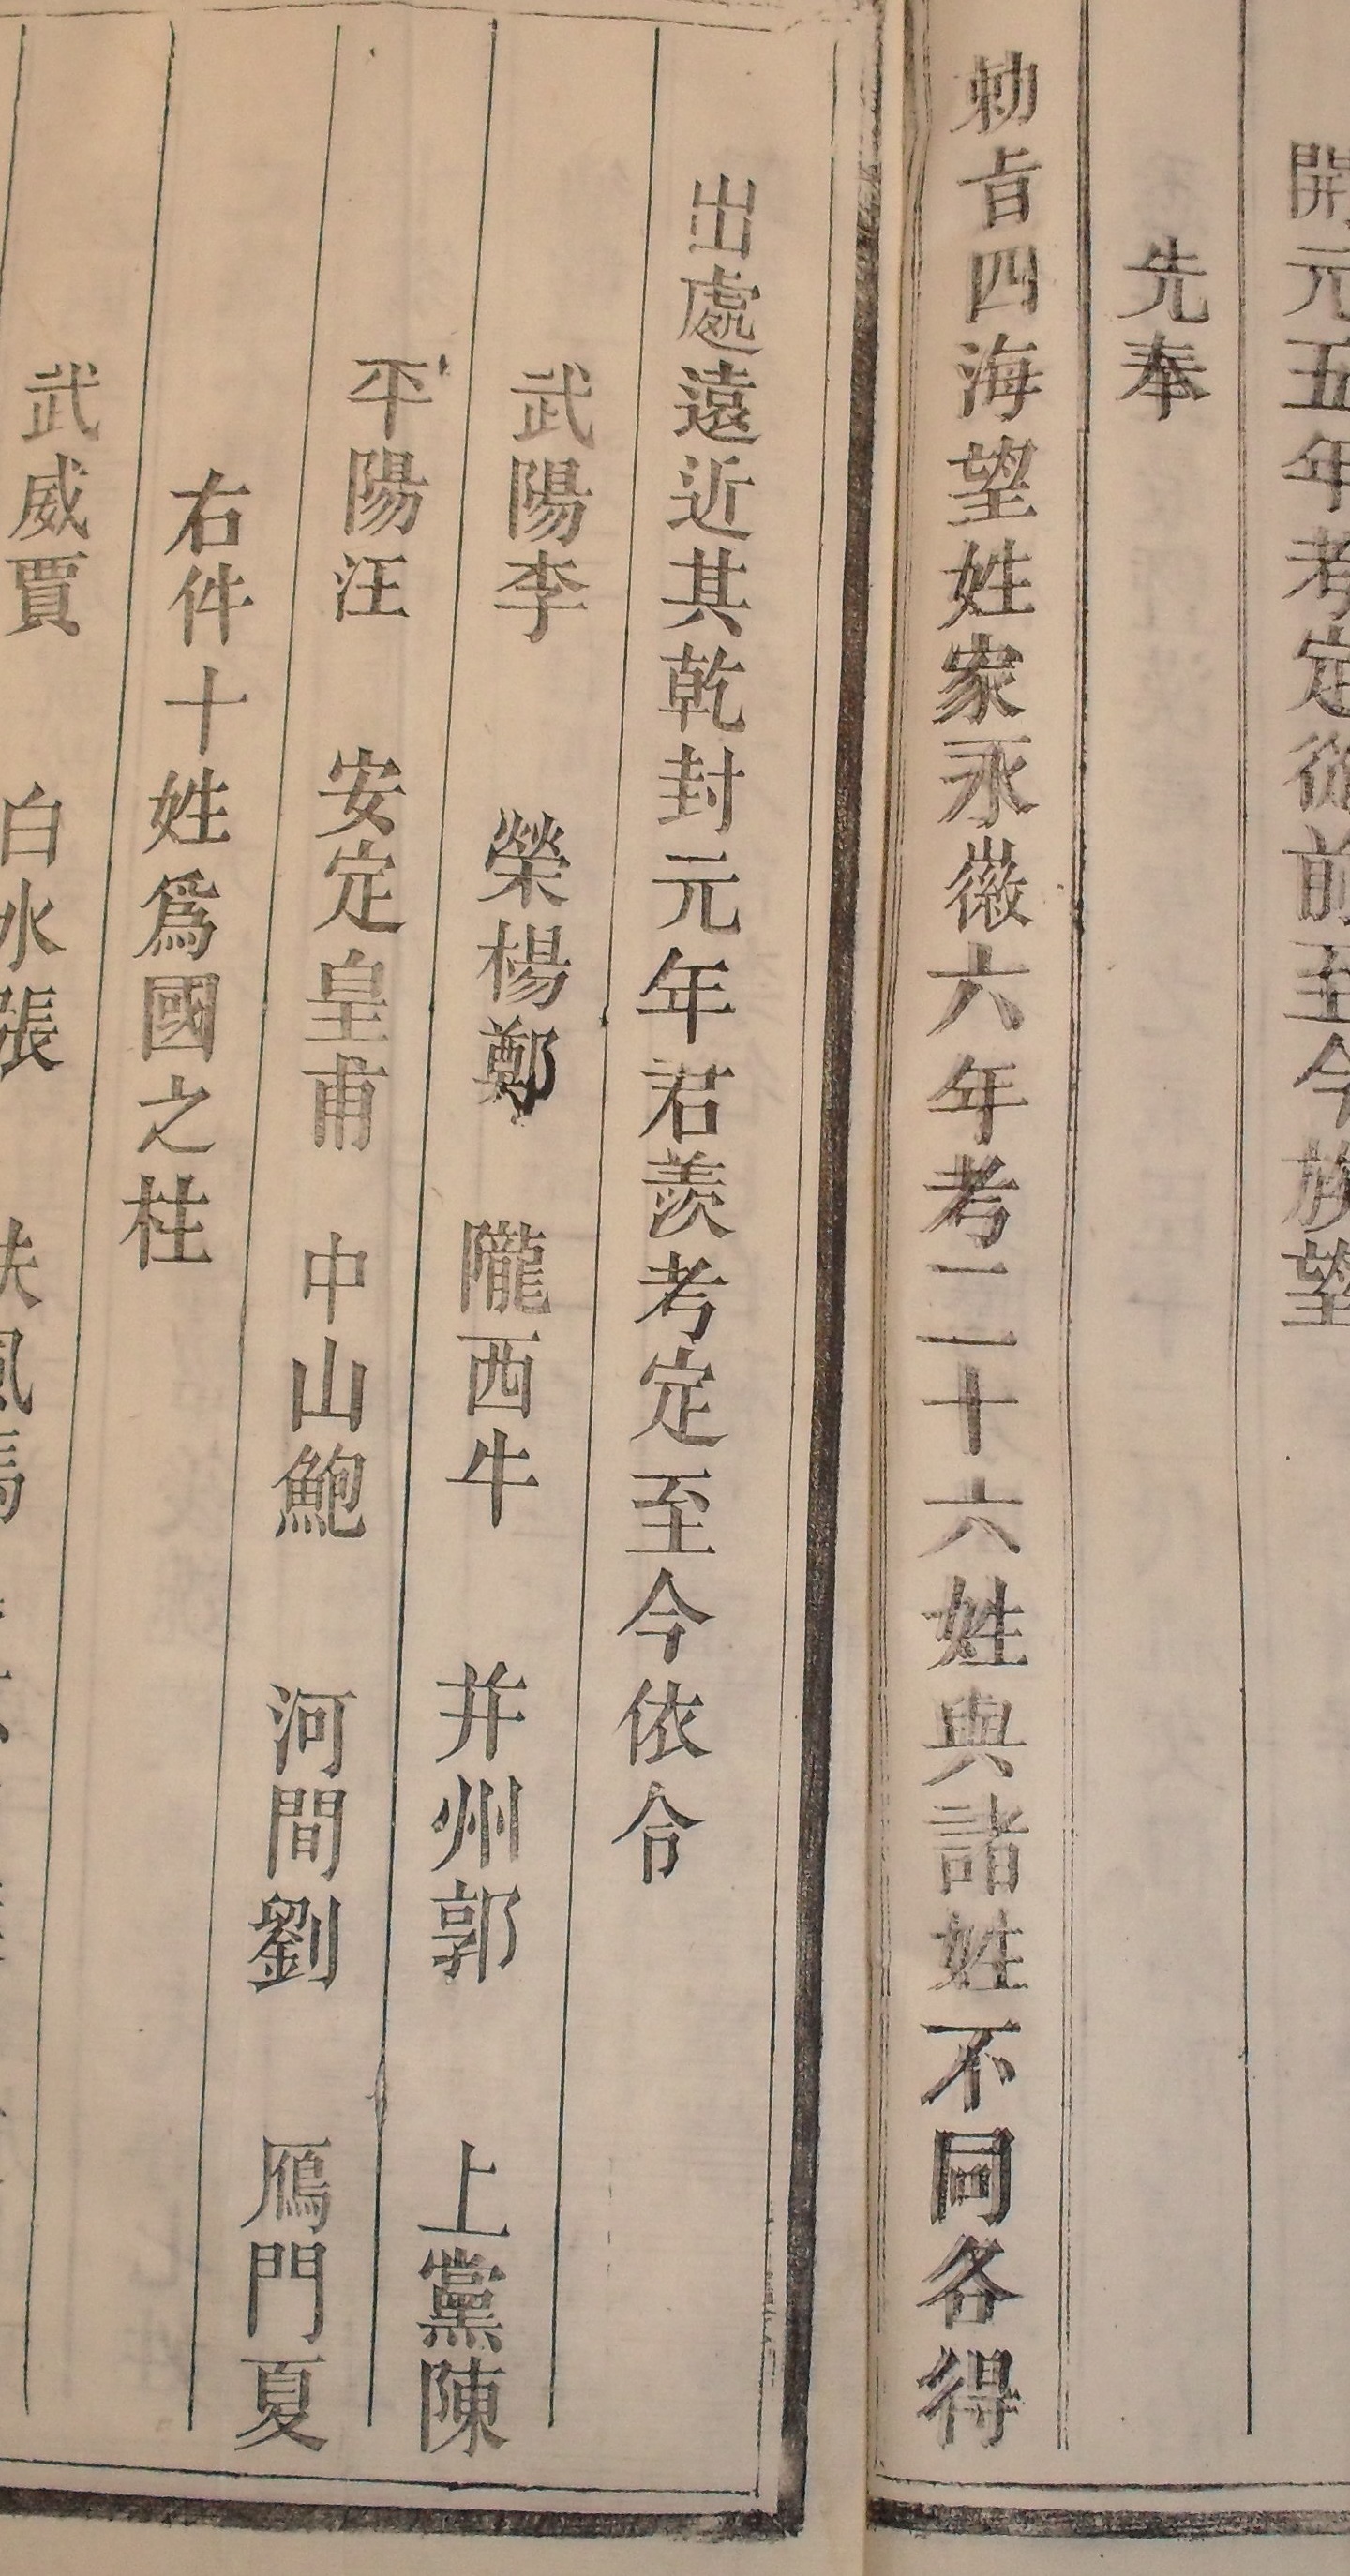 開元五年考定從前至今族望
先奉
勅旨四海望姓家永徽六年考二十六姓與諸姓不同各得
出處遠近其乾封元年君羨考定至今依令
武陽李 榮楊鄭 隴西牛 并州郭 上黨陳
平陽汪 安定皇甫 中山鮑 河間劉 雁門夏
右件十姓爲國之柱
武威賈 白水張 扶風馬